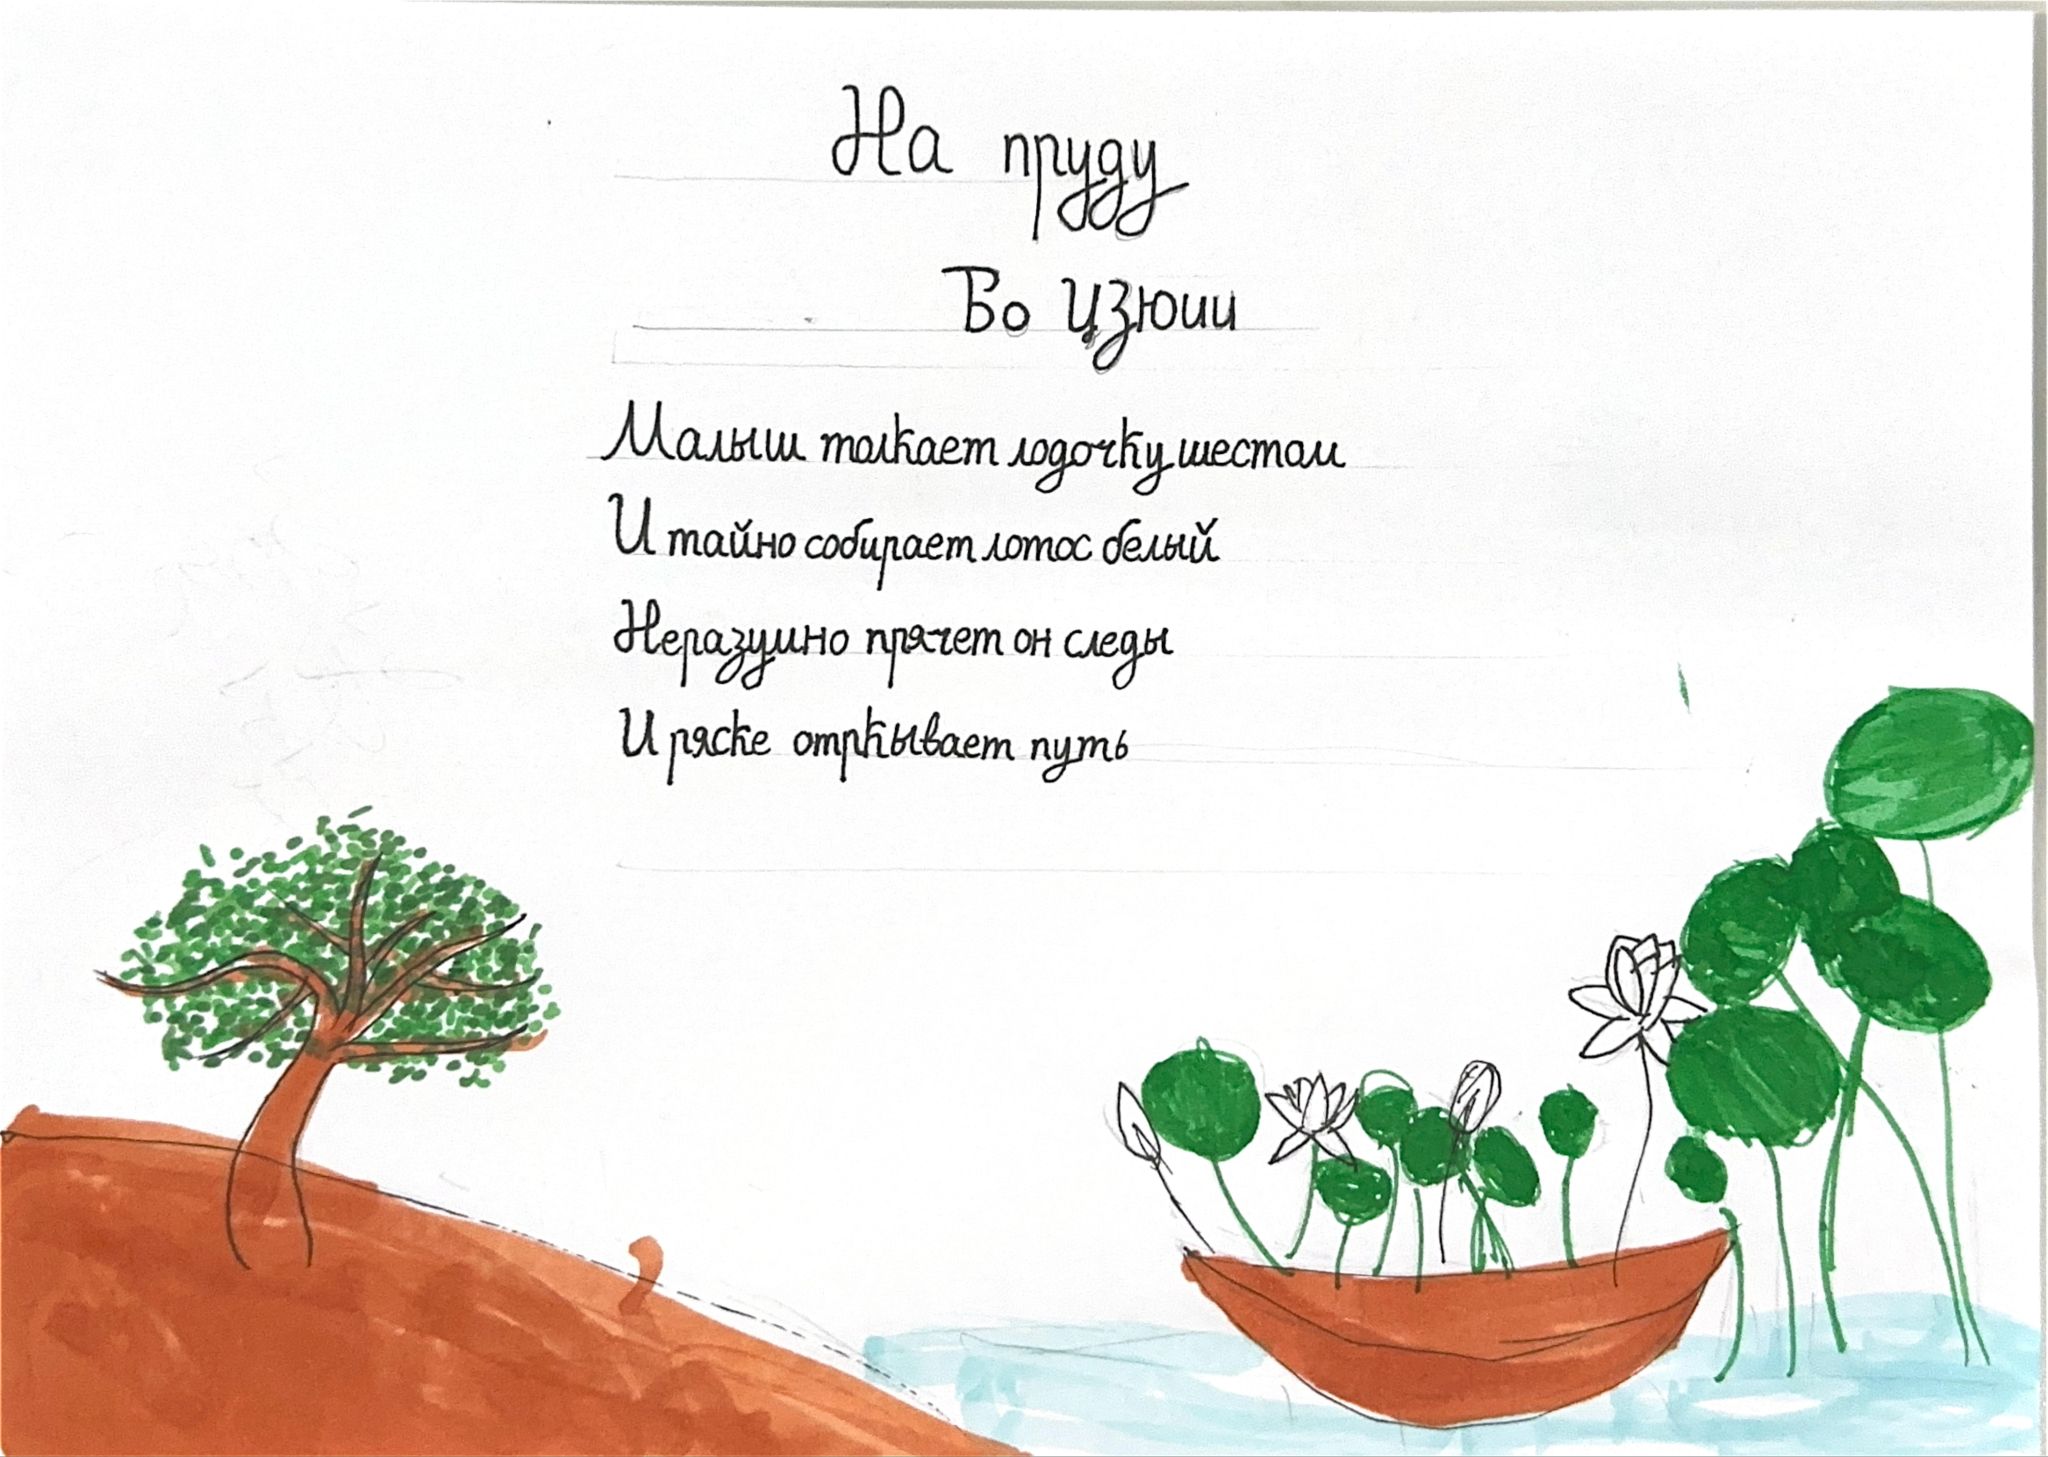 На пруду
Бо Цзюии
Малыш толкает лодочку шестом
И тайно собирает лотос белый
Неразумно прячет он следы
И ряске отркывает путь